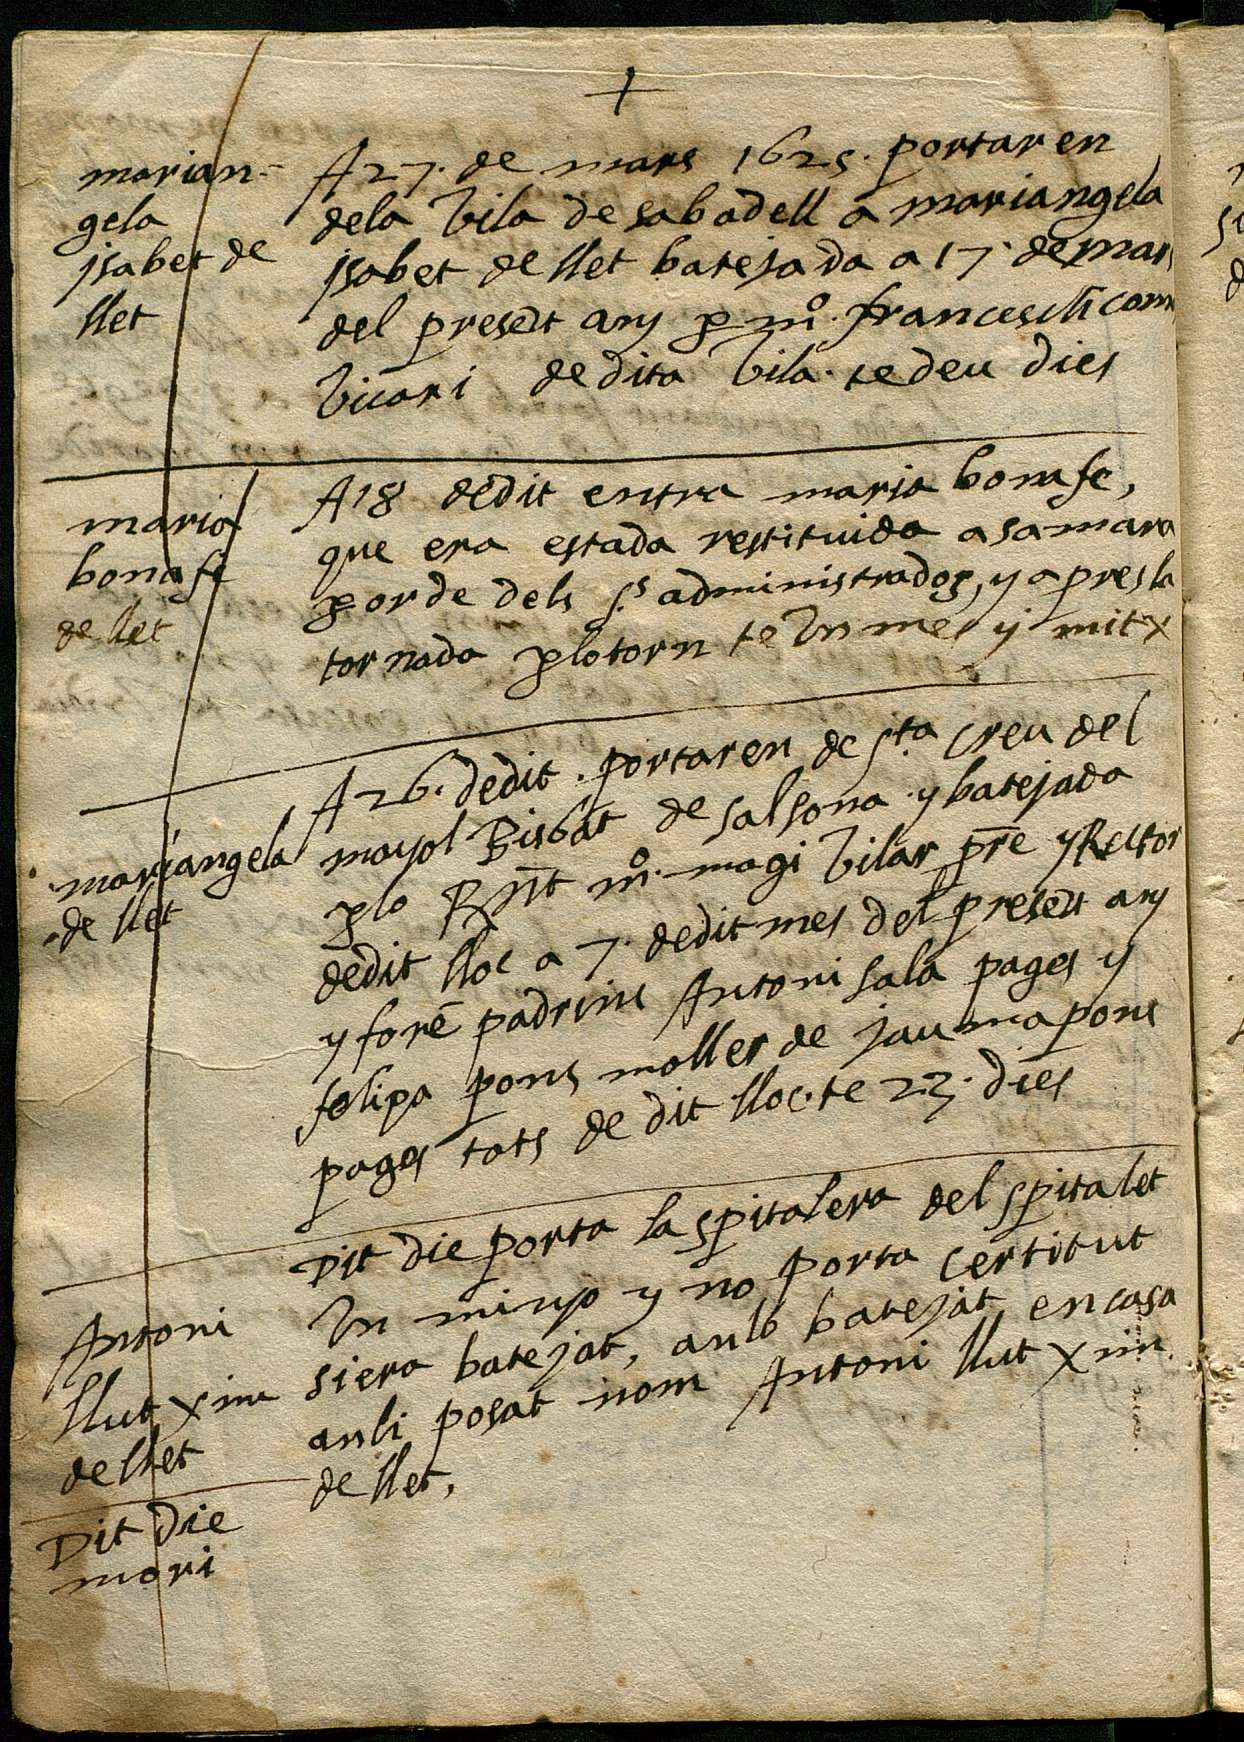 +
marian-
gela
jsabet de
llet
A 27. de mars 1625. portaren
dela Vila de sabadell a mariangela
jsabet de llet batejada a 17. de mars
del preset any p mº. francesch
Vicari de dita Vila. te deu dies
maria
bonafe
de llet
A 18 dedit entra maria bonafe,
que era estada restituida a sa mara
p orde dels s.rs administrados, y apres la
tornada plo torn te Vn mes y mitx
mariangela
de llet
A 26. dedit. portaren de s.ta creu del
mayol Bisbat de salsona. y batejada
plo Rnt mº. magi Vilar pre y Rector
dedit lloc a 7. dedit mes del preset any
y fore padrins Antoni sala pages y
felipa pons moller de jauma pons
pages tots de dit lloc. te 23. dies
Antoni
llut x
de llet
Dit die
mori
Dit die porta la spitalera del spitalet
Vn minyo y no porta certitut
si era batejat, anlo batejat en casa
anli posat nom Antoni llut x
de llet,